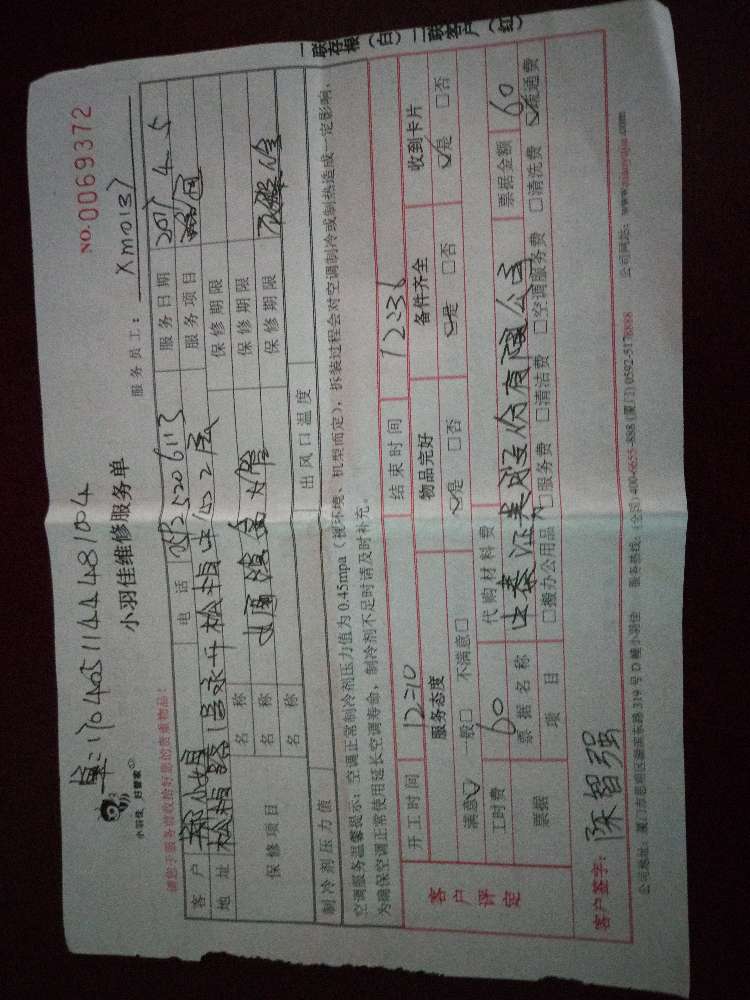 单:1704051144481004
NO.0069372
小羽佳 好管家
小羽佳维修服务单
服务员工: XM0131
请您于服务前收拾好您的贵重物品!
客户 郑小姐 电话 服务日期 2017.4.5
地址 服务项目 疏通
保修项目 名称 保修期限
名称 保修期限
名称 保修期限
制冷剂压力值 出风口温度
空调服务温馨提示:空调正常制冷剂压力值为0.45mpa(视环境、机型而定),拆装过程会对空调制冷或制热造成一定影响,
为确保空调正常使用延长空调寿命,制冷剂不足时请及时补充。
客户评定 开工时间 12:10 结束时间 12:36
服务态度 物品完好 备件齐全 收到卡片
满意☑ 一般□ 不满意□ ☑是 □否 ☑是 □否 ☑是 □否
工时费 60 代购材料费 票据金额 60
票据 票据名称 股份有限公司
项目 □搬办公用品 □服务费 □清洁费 □空调服务费 □清洗费 ☑疏通费
客户签字: 陈智强
公司地址: 厦门市思明区 319号D幢小羽佳 服务热线: (全国)400-6655-888 (厦门)0592-5178888 公司网站:
一联存根(白) 二联客户(红)